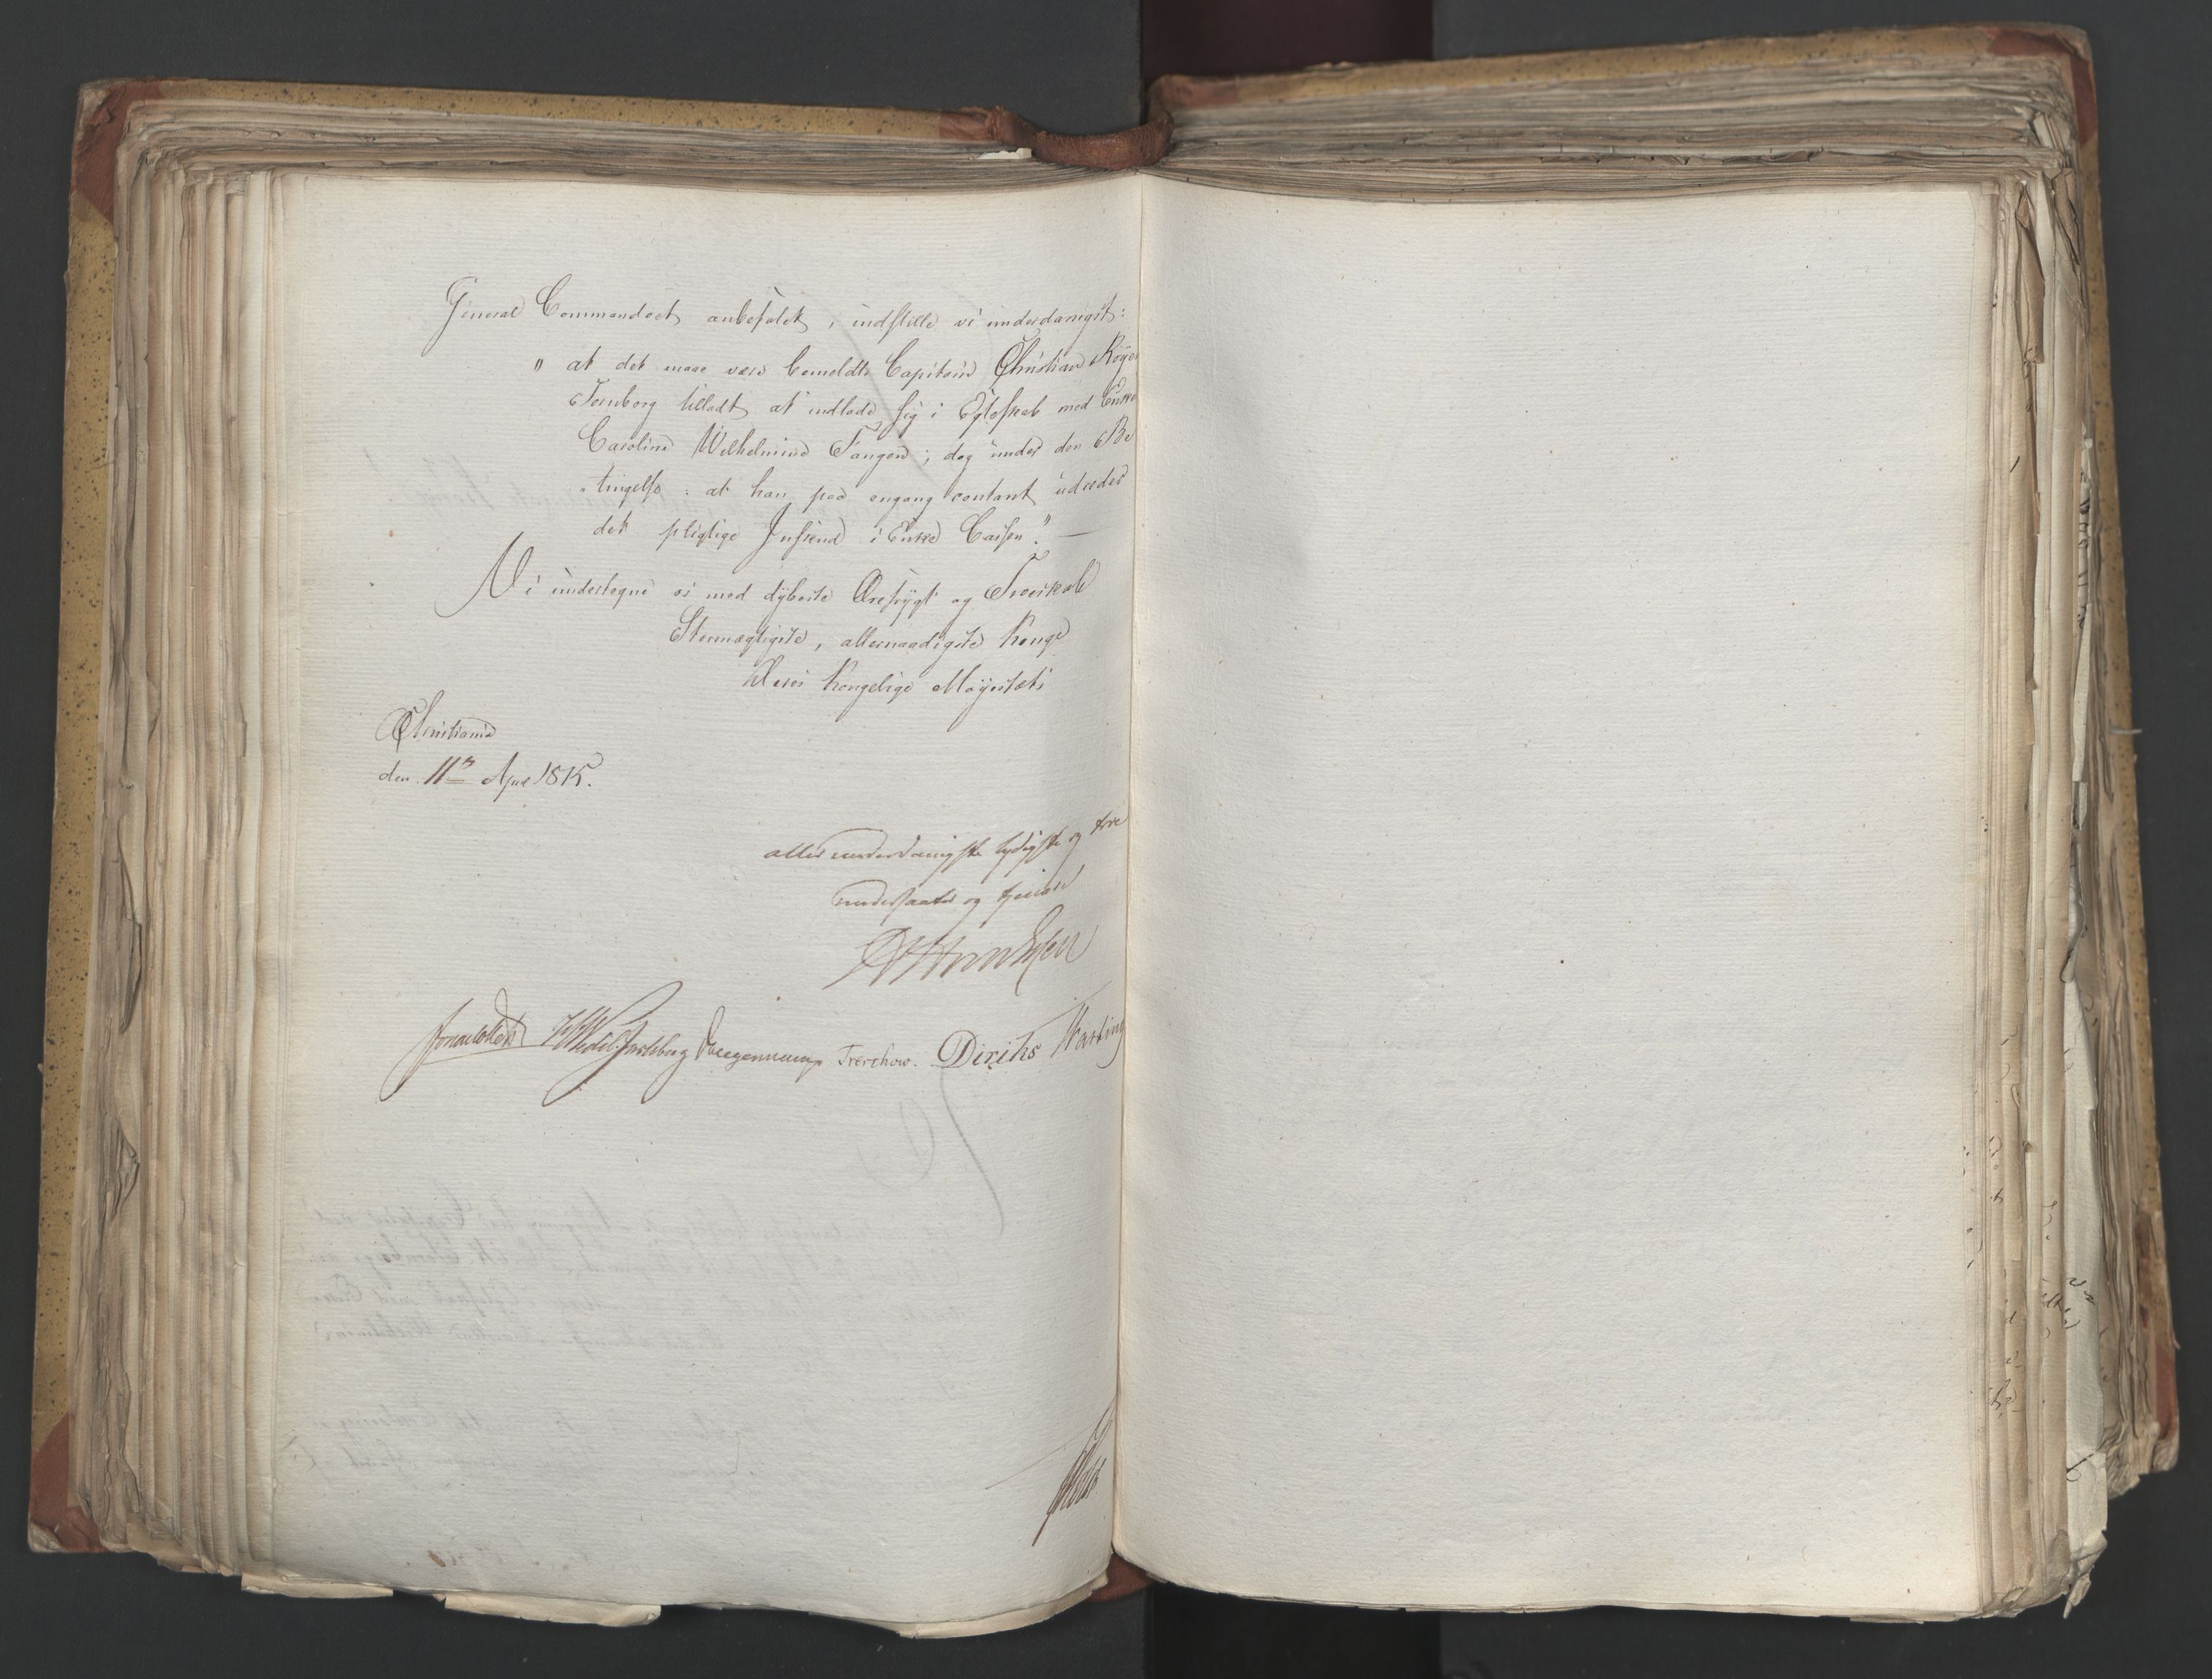 General Commandoet anbefalet, indstille vi underdanigst:
" at det maae være bemeldte Capitain Christian Røyer
Jernborg tilladt at indlade sig i Egteskab med Enke
Caroline Wilhelmine Tangen; dog under den Be
tingelse: at han paa engang contant udreder
det pligtige Indskud i Enke Cassen". —
Vi undertegne os med dybeste Ærefrygt og Troeskab
Stormægtigste, allernaadigste Konge
Deres Kongelige Majestæts
Christiania
den 11te April 1815.
allerunderdanigste lydigste og troe
undersaatter og tjenere
Sommerhielm HWedel-Jarlsberg Treschow. Diriks